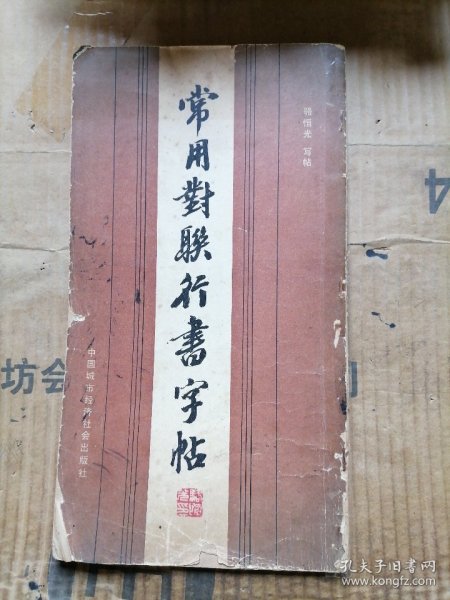 骆恒光 写帖
常用對聯行書字帖
中国城市经济社会出版社
坊会
4
司
孔夫子旧书网
www.kongfz.com